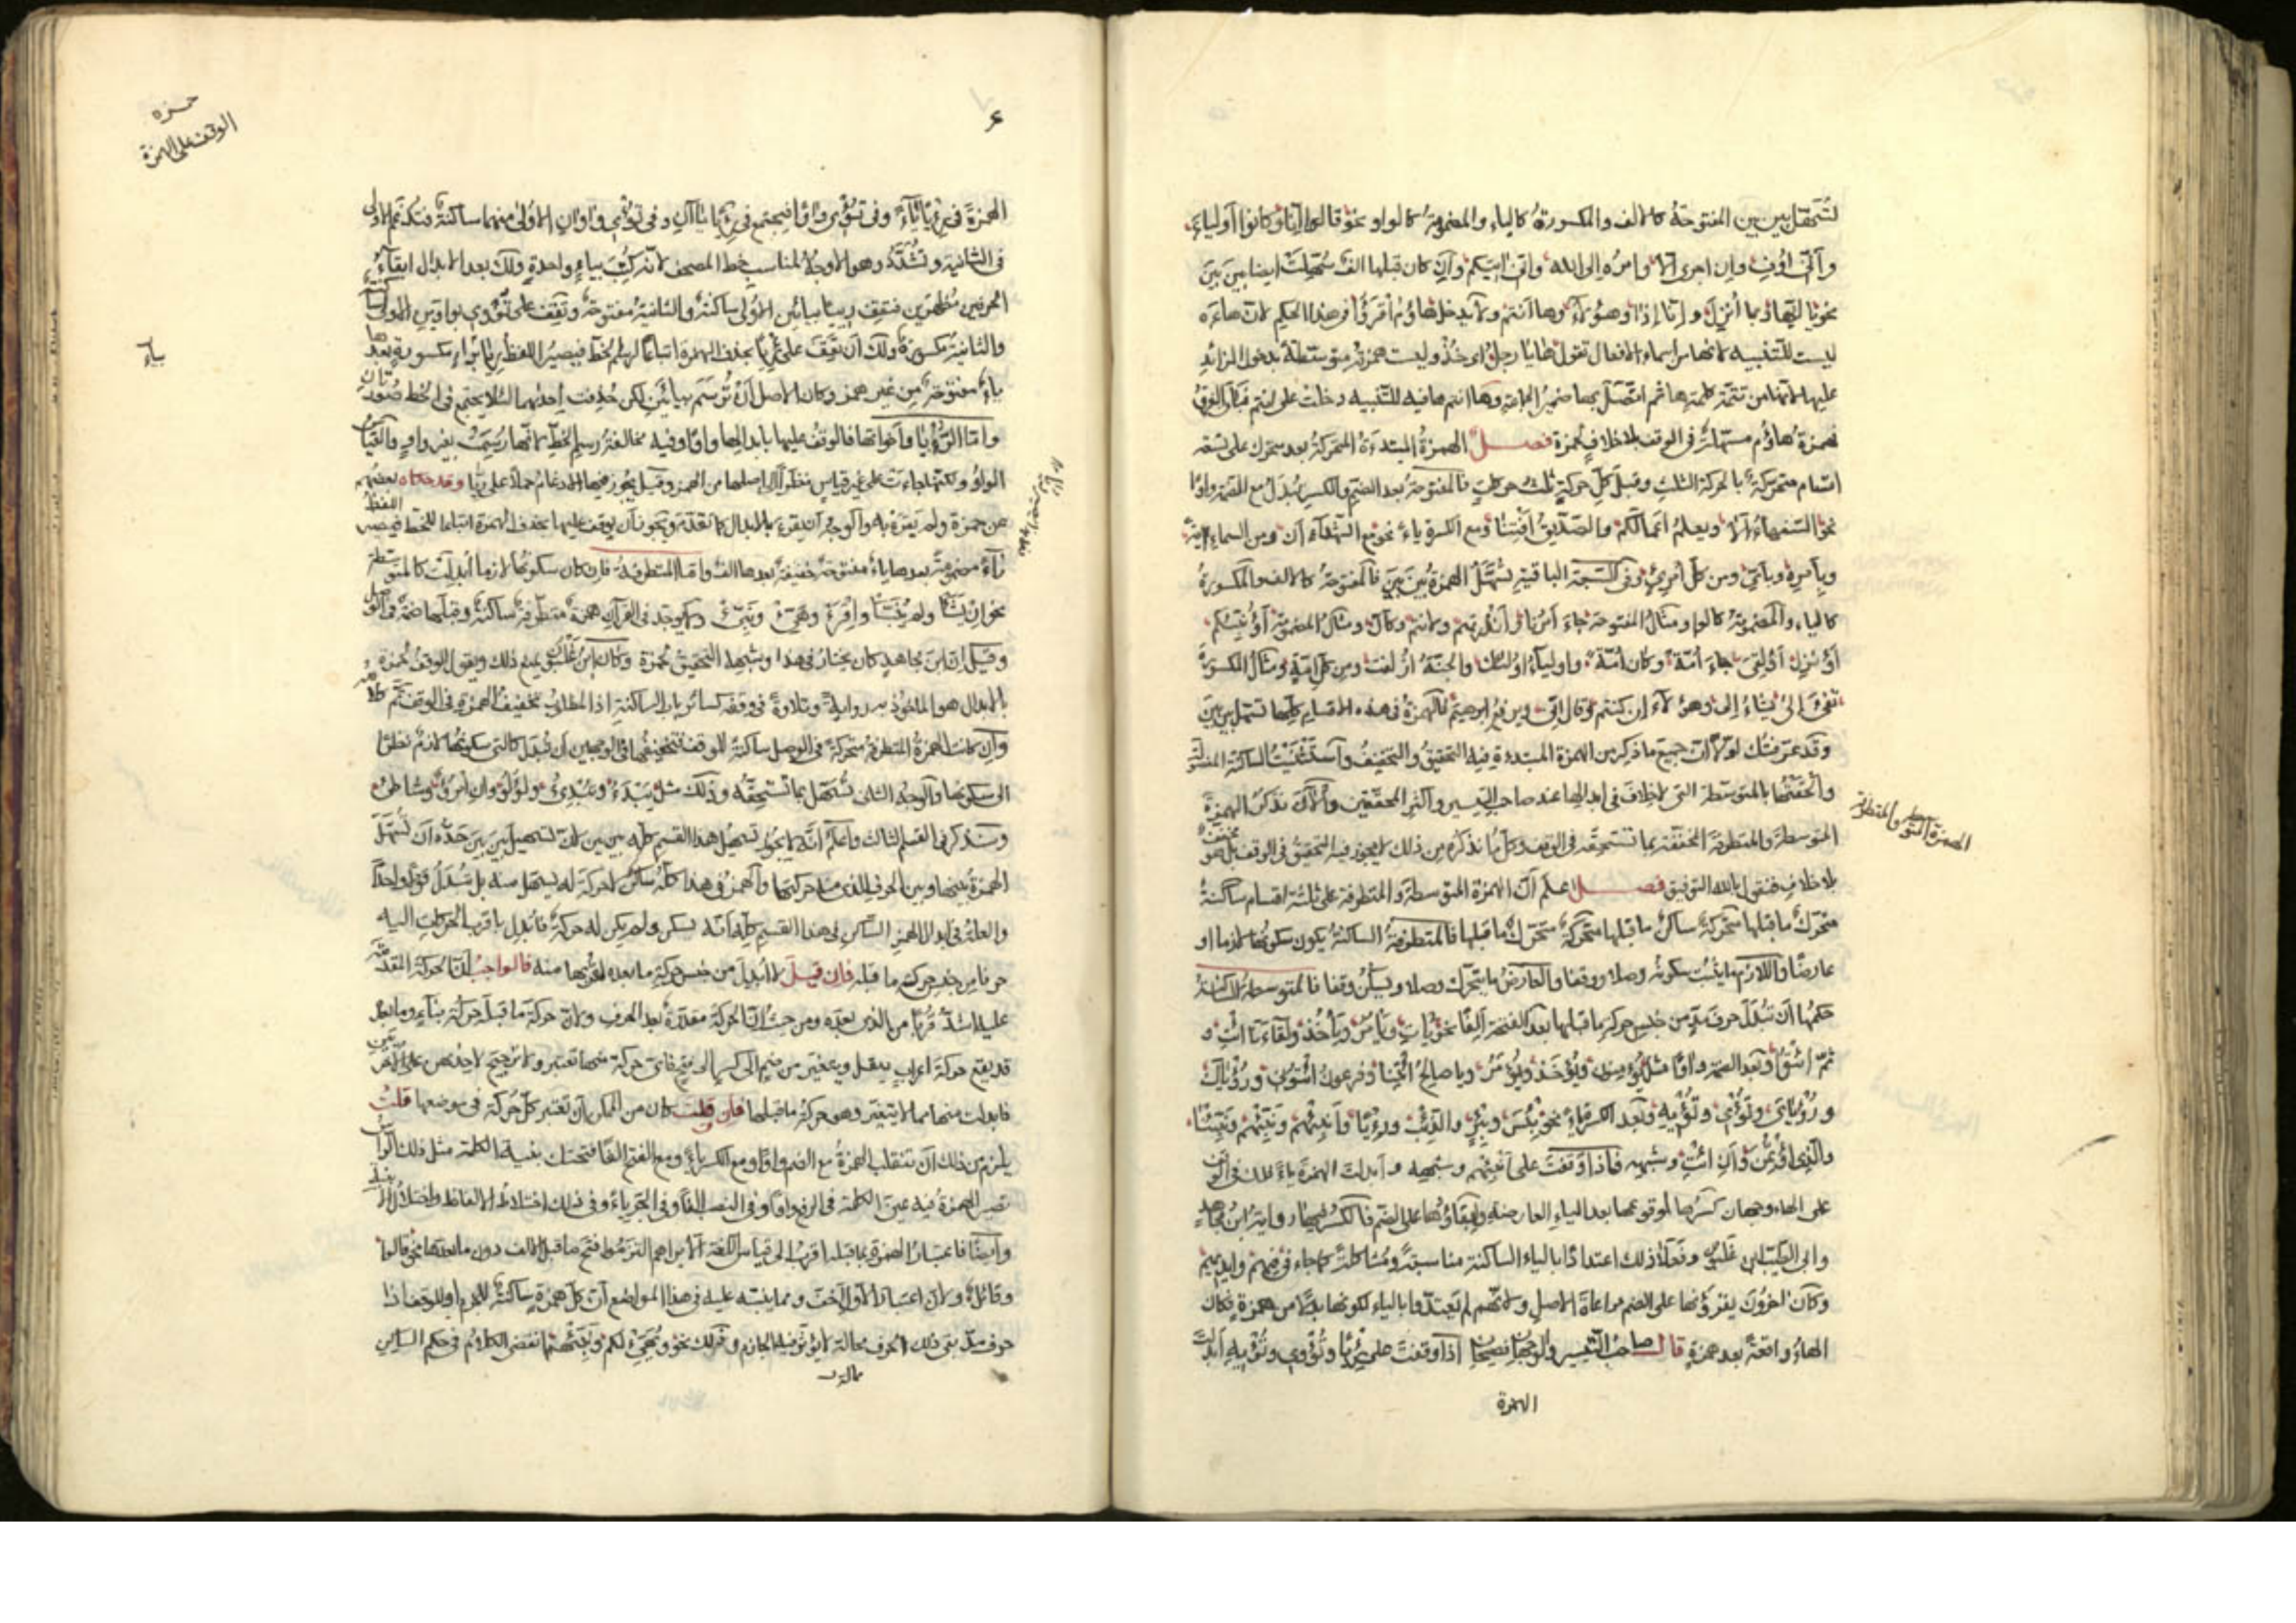 لتسهل بين بين المفتوحة كالالف والمكسورة كالياء والمضمومة كالواو نحو قالوا آمنا وكانوا أولياءه
وانى اوفى وان اجرى الا وامره الى الله وانى اتيكم وان كان قبلها الف سهلت ايضا بين بين
نحو يا ايها وبما أنزل وانا اذا وهؤلاء وها انتم ولا يدخل هاؤم اقرؤا في هذا الحكم لان هاءه
ليست للتنبيه لانها من اسماء الافعال تقول ها يا رجل اى خذ وليست همزته متوسطة بدخول الزائد
عليها لانها من تتمة كلمة ها ثم اتصل بها ضمير الجماعة وها انتم ها فيه للتنبيه دخلت على انتم
فهمزة هاؤم مسهلة في الوقف بلا خلاف لحمزة فصل الهمزة المبتدءة المتحركة بعد متحرك على تسعة
اقسام متحركة بالحركة الثلث وقبل كل حركة ثلث حركات فالمفتوحة بعد الضم والكسر تبدل مع الضمة واوا
نحو السفهاء الا ويعلم اعمالكم والصديق افتنا ومع الكسرة ياء نحو مع الشهداء ان ومن السماء اية
وبامره وباى ومن كل امرئ وفى السبعة الباقية تسهل الهمزة بين بين فالمفتوحة كالالف والمكسورة
كالياء والمضمومة كالواو ومثال المفتوحة جاء امرنا وأنذرتهم ولانتم وكان ومثال المضمومة أؤنبئكم
أؤنزل أؤلقى جاء امة وكان امة واولياء اولئك والجنة ازلفت ومن كل امة ومثال المكسورة
تفئ الى يشاء الى وهؤلاء ان كنتم وقال انى ومن غير ابرهيم فالهمزة في هذه الاقسام كلها تسهل بين بين
وقد عرفتك اولا ان جميع ما ذكر من الهمزة المبتدءة فيه التحقيق والتخفيف واستثنيت الساكنة
والحقتها بالمتوسطة التى لا خلاف في ابدالها عند صاحب التيسير واكثر المحققين والان نذكر الهمزة
المتوسطة والمتطرفة المخففة بما تستحقه في الوقف وكل ما نذكره من ذلك لا يجوز فيه التحقيق في الوقف بل هو
بلا خلاف فنقول بالله التوفيق فصل اعلم ان الهمزة المتوسطة والمتطرفة على ثلثة اقسام ساكنة
متحرك ما قبلها متحركة ساكن ما قبلها متحركة متحرك ما قبلها فالمتطرفة الساكنة يكون سكونها لازما او
عارضا واللازم ما يثبت سكونه وصلا ووقفا والعارض ما يتحرك وصلا ويسكن وقفا فالمتوسطة الساكنة
حكمها ان تبدل حرف مد من جنس حركة ما قبلها بعد الفتحة الفا نحو يات ويامر وياخذ ولقاءنا ائت
ثم ائتوا وبعد الضمة واوا مثل يؤمنون ويؤخذ ويؤمر ويا صالح ائتنا وفرعون ائتونى ورؤياك
ورؤياى وتؤى وتؤيه وبعد الكسرة ياء نحو بئس وبئر والذئب ورءيا وانبئهم ونبئهم ونبئنا
والذى اؤتمن وان ائت وشبهه فاذا وقفت على انبئهم وشبهه وابدلت الهمزة ياء فلك في
على الهاء وجهان كسرها لوقوعها بعد الياء العارضة وابقاؤها على الضم فالكسر فيها رواية ابن مجاهد
وابى الطيب ابن غلبون وفعلا ذلك اعتدادا بالياء الساكنة مناسبة ومشاكلة كما جاء في فيهم وايديهم
وكان اخرون يقرؤنها على الضم مراعاة الاصل ولانهم لم يعتدوا بالياء لكونها بدلا من همزة فكان
الهاء واقعة بعد همزة قال صاحب التيسير والوجهان صحيحان اذا وقفت على رئيا وتؤوى وتؤيه ابدلت
الهمزة
الهمزة المتوسطة والمتطرفة
حمزه
الوقف على الهمزة
الهمزة في رئيا ياء وفى تؤوى واوا فيجتمع في رئيا ياان وفى تؤوى واوان الاولى منهما ساكنة فتدغم الاولى
في الثانية وتشدد وهو الاوجه المناسب خط المصحف لانه كتب بياء واحدة ولك بعد الابدال ابقاء
الحرفين مظهرين فتقف رييا بيائين الاولى ساكنة والثانية مفتوحة وتقف على تؤوى بواوين الاولى ساكنة
والثانية مكسورة ولك ان تقف على رئيا بحذف الهمزة اتباعا لرسم الخط فيصير اللفظ ريا براء مكسورة بعدها
ياء مفتوحة من غير همز وكان الاصل ان ترسم بيائين لكن حذفت احديهما لئلا يجتمع في الخط صورتان
واما الرؤيا واخواتها فالوقف عليها بابدالها واوا وفيه مخالفة رسم الخط لانها رسمت بغير واو والقياس
الواو ولكنها جاءت على غير قياس نظرا الى اصلها من الهمز وقيل يجوز فيها الادغام حملا على ريا وقد حكاه بعضهم
عن حمزة ولم يقرء به والوجه ان يقرء بالابدال كما تقدم ويجوز ان يوقف عليها بحذف الهمزة اتباعا للخط فيصير اللفظ
راء مضمومة بعدها ياء مفتوحة خفيفة بعدها الف واما المتطرفة فان كان سكونها لازما ابدلت كالمتوسطة
نحو ان يشا ولم ينبا واقرء وهيئ ونبئ ولا يوجد في القرآن همزة متطرفة ساكنة وقبلها ضمة في الوصل
وقيل ان ابن مجاهد كان يختار في هذا وشبهه التحقيق لحمزة وكان ابن غلبون يمنع ذلك ويقول الوقف لحمزة
بالابدال هو الماخوذ به رواية وتلاوة في وقفه كسائر باب الساكنة اذ المطلوب تخفيف الهمزة في الوقف
وان كانت الهمزة المتطرفة متحركة في الوصل ساكنة للوقف فتخفيفها في الوجهين ان تبدل كالتى سكونها لازم نظرا
الى سكونها والوجه الثانى تسهل بما تستحقه وذلك مثل يبدء ويبدئ ولؤلؤ وان امرؤ وشاطئ
وسنذكر في القسم الثالث واعلم انه لا يجوز تسهيل هذا القسم كله بين بين لان تسهيل بين بين حده ان تسهل
الهمزة بينها وبين الحرف الذى منه حركتها والهمز في هذا كله ساكن لا حركة له ليسهل منه بل تبدل قولا واحدا
والعلة في ابدال الهمز الساكن في هذا القسم كله انه يسكن ولم يكن له حركة فابدل باقرب الحركات اليه
حرفا من جنس حركة ما قبله فان قيل لا ابدل من جنس حركة ما بعده لقربها منه فالجواب ان الحركة المتقدمة
عليه اشد قربا من الذى بعده ومن حيث ان الحركة مقدرة بعد الحرف ولان حركة ما قبله حركة بناء وما بعد
قد يقع حركة اعراب ينتقل ويتغير من ضم الى كسر الى فتح فاى حركة منها تعتبر ولا ترجيح لاحدهن على الاخريين
فابدلت منها مما لا يتغير وهو حركة ما قبلها فان قلت كان من الممكن ان تعتبر كل حركة في موضعها قلت
يلزم من ذلك ان تنقلب الهمزة مع الضم واوا ومع الكسر ياء ومع الفتح الفا فتختلف بغية الكلمة مثل ذلك الراس
تصير الهمزة فيه عين الكلمة في الرفع واوا وفى النصب الفا وفى الجر ياء وفى ذلك اختلاط الالفاظ
وايضا فاعتبار الهمزة بما قبله اقرب الى قياس اللغة الا تراهم التزموا فتح ما قبل الالف دون ما بعدها نحو قالوا
وقائل ولان اعتبار الاول اخف ومما ينبه عليه في هذا المواضع ان كل همزة ساكنة للجزم او للوقف اذا
حرف مد بقى ذلك الحرف بحالة لا يؤثر فيه الجازم وذلك نحو ويهيئ لكم ونبئهم انقضى الكلام في حكم الساكن
بحالة
ياء